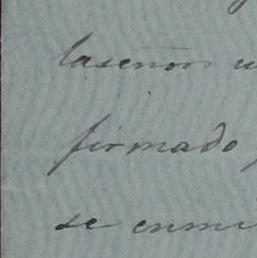 laseñor
firmado
se enme